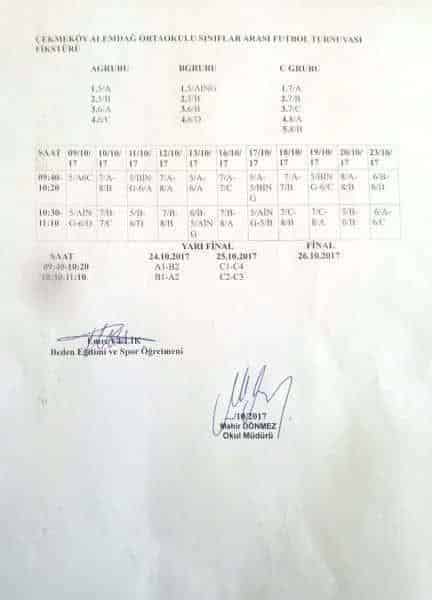 ÇEKMEKÖY ALEMDAĞ ORTAOKULU SINIFLAR ARASI FUTBOL TURNUVASI
FİKSTÜRÜ
A GRUBU B GRUBU C GRUBU
1.5/A 1.5/AİNG 1.7/A
2.5/B 2.7/B
3.6/A 3.6/B 3.7/C
4.6/C 4.6/D 4.8/A
5.8/B
SAAT 09/10/17 10/10/17 11/10/17 12/10/17 13/10/17 16/10/17 17/10/17 18/10/17 19/10/17 20/10/17 23/10/17
09:40-10:20 7/A-8/B 5/BİNG-6/A 7/A-8/A 5/A-6/A 7/A-7/C 5/A-5/BİNG 7/A-7/B 5/BİNG-6/C 8/A-8/B 6/B-6/D
10:30-11:10 5/AİNG-6/D 7/B-7/C 5/B-6/D 7/B-8/A 6/B-5/AİNG 7/B-8/B 5/AİNG-5/B 7/C-8/B 7/C-8/A 5/B-6/B 6/A-6/C
YARI FİNAL FİNAL
SAAT 24.10.2017 25.10.2017 26.10.2017
09:40-10:20 A1-B2 C1-C4
10:30-11:10 B1-A2 C2-C3
Beden Eğitimi ve Spor Öğretmeni
/10/2017
Mahir DÖNMEZ
Okul Müdürü